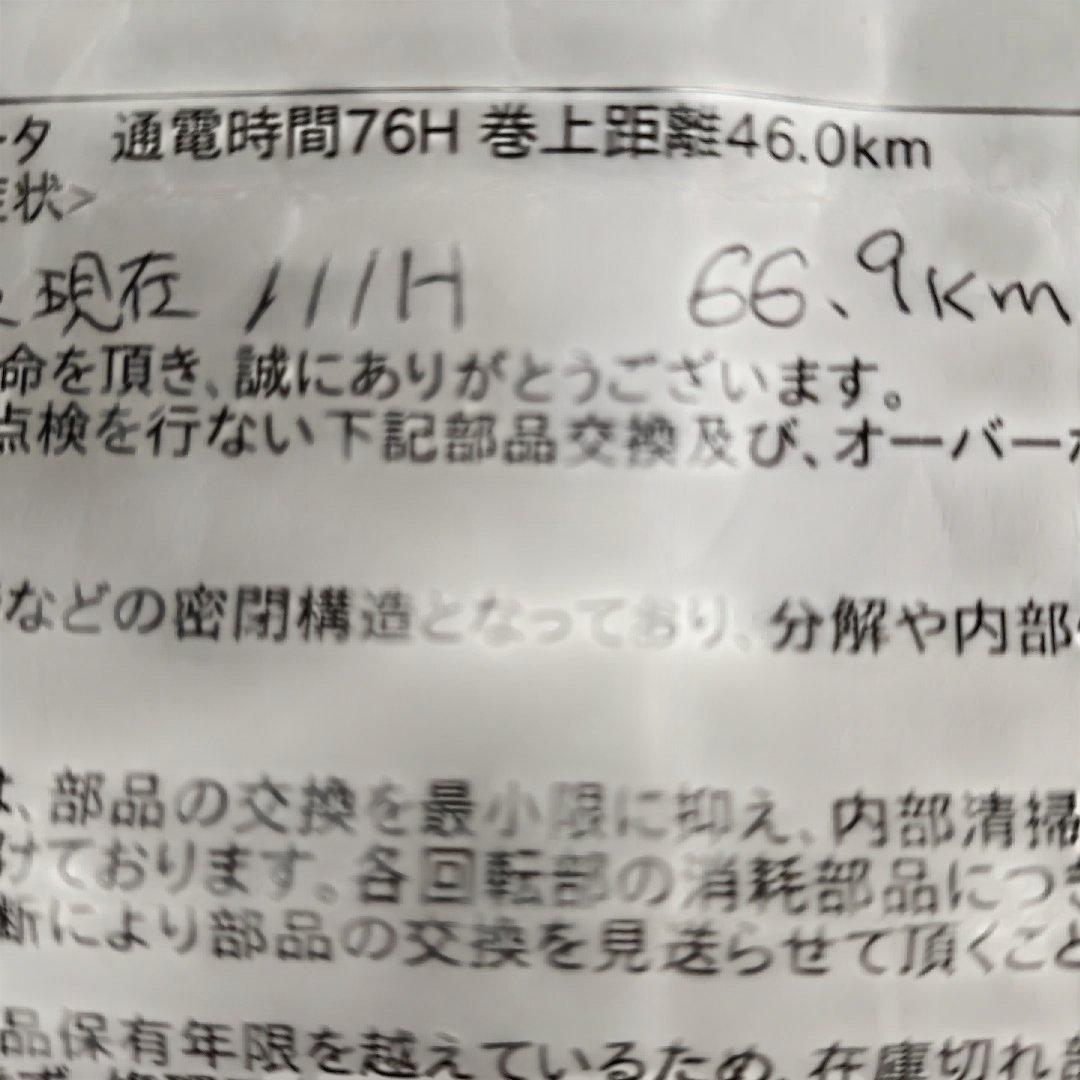 ータ 通電時間76H 巻上距離46.0km
症状>
現在 111H 66.9km
命を頂き、誠にありがとうございます。
点検を行ない下記部品交換及び、オーバーホ
などの密閉構造となっており、分解や内部
は、部品の交換を最小限に抑え、内部清掃
けております。各回転部の消耗部品につき
断により部品の交換を見送らせて頂くこと
品保有年限を越えているため、在庫切れ部